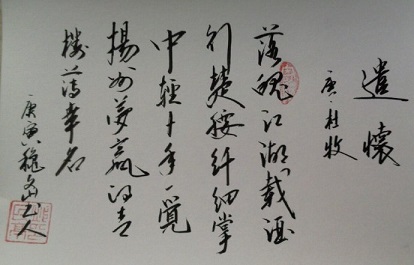 遣懷
唐·杜牧
落魄江湖載酒
行楚腰纤細掌
中輕十年一覺
揚州夢贏得青
樓薄幸名
庚寅穐山人